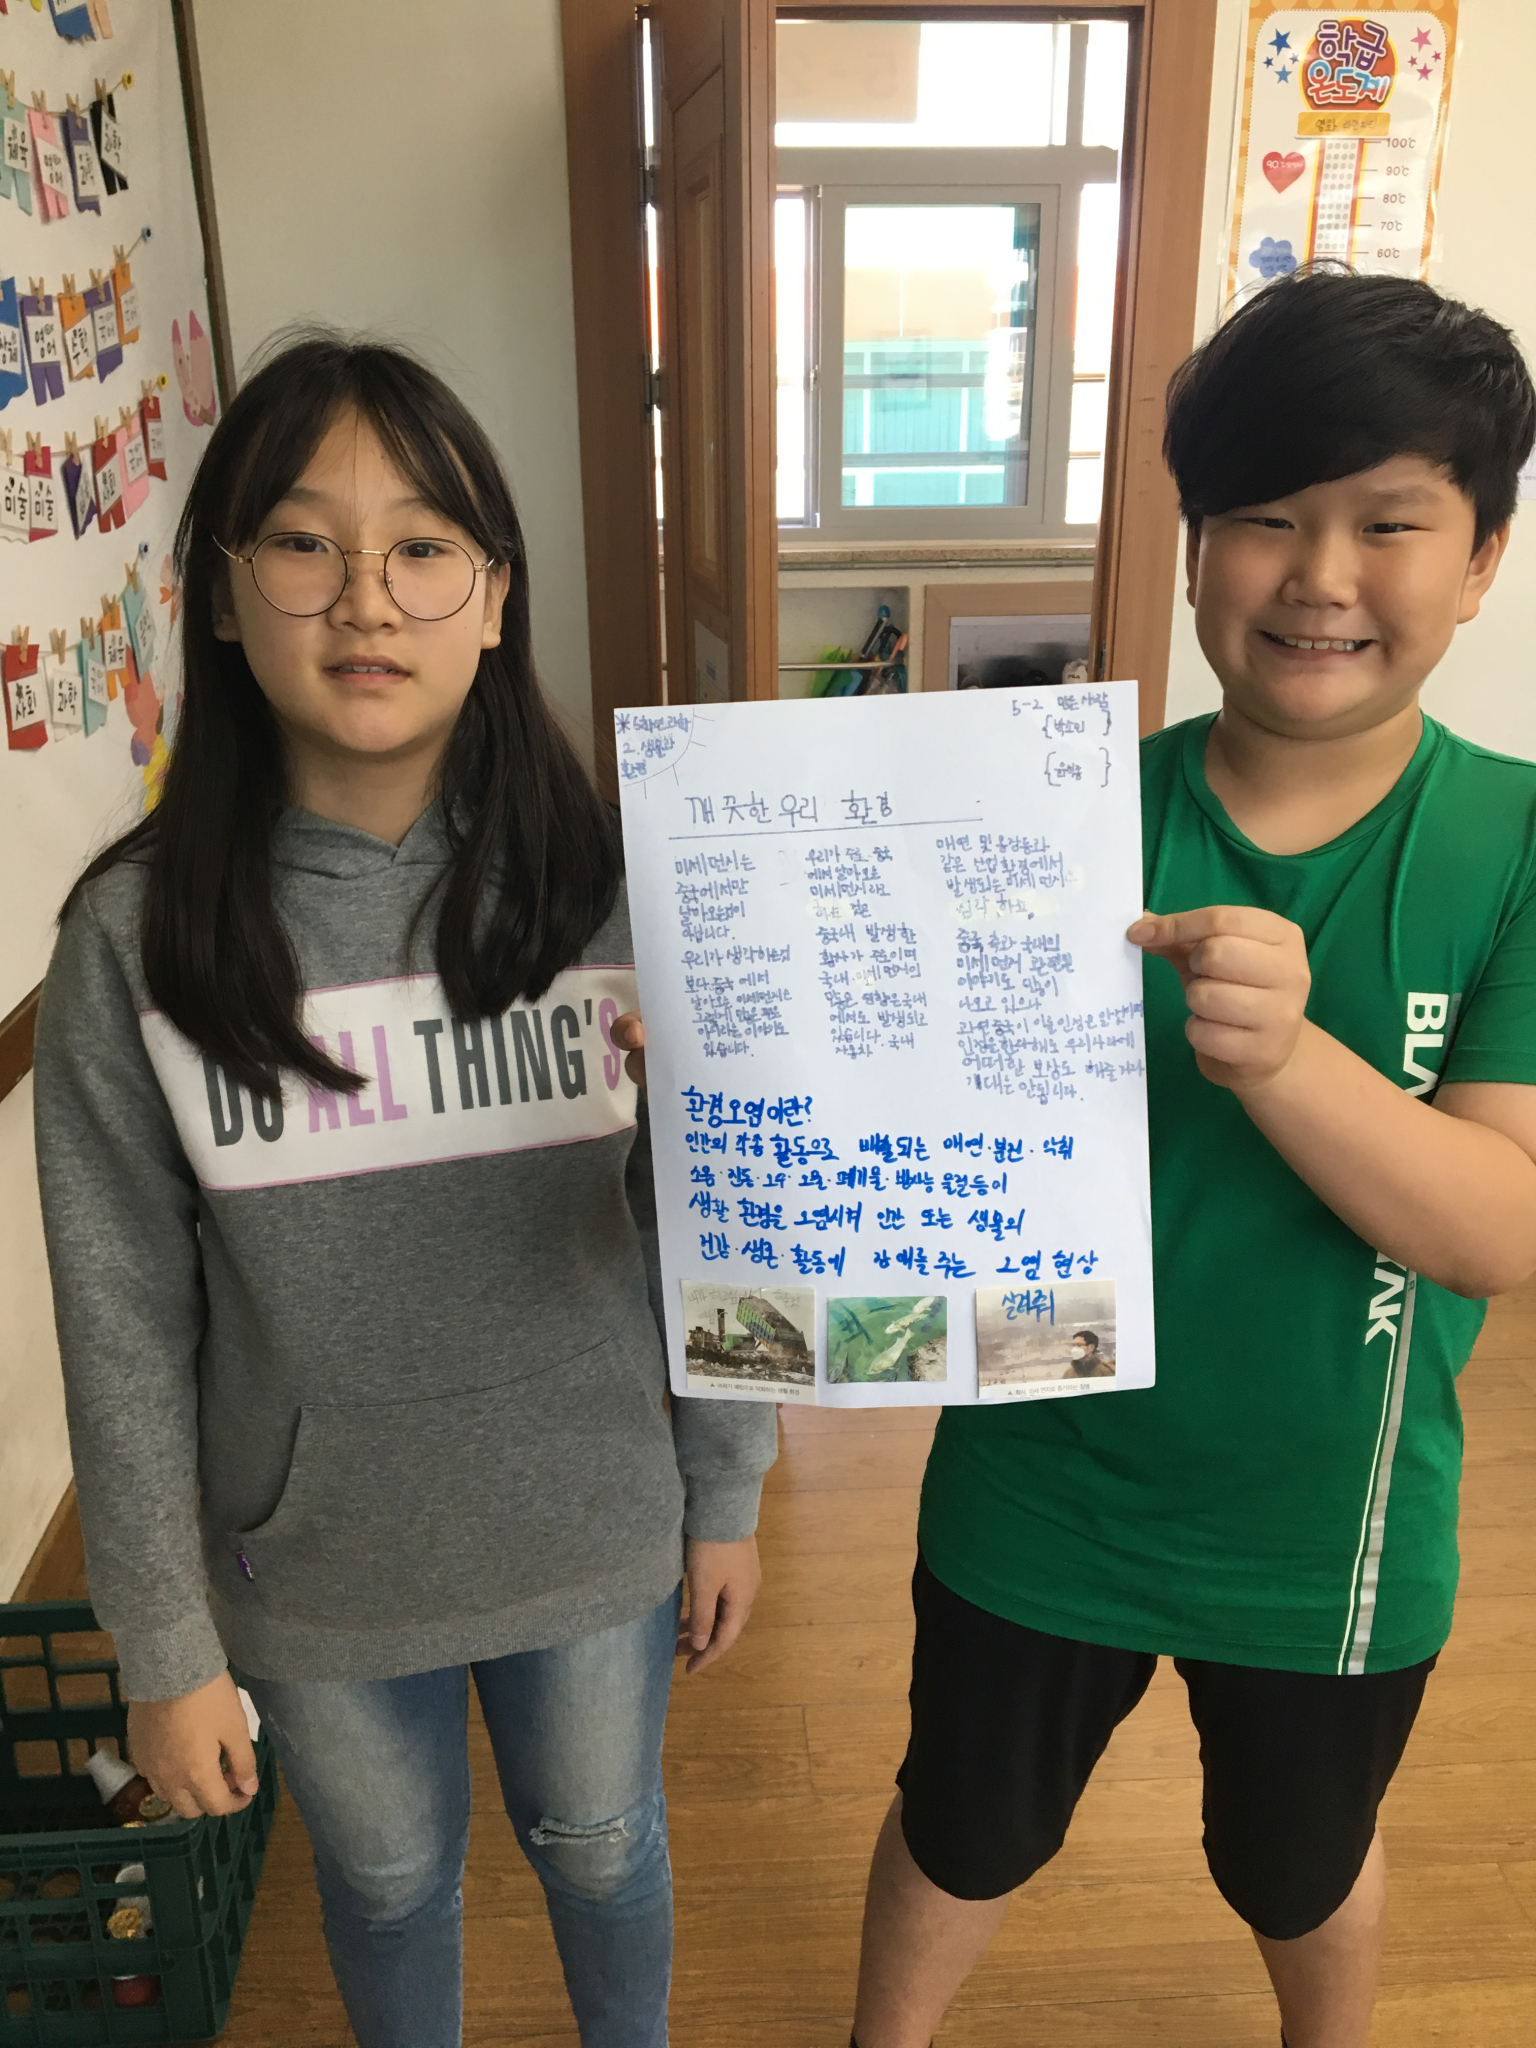 체육
영어
과학
과학
창체
영어
수학
국어
국어
미술
미술
사회
국어
사회
과학
국어
체육
학급
온도계
100℃
90℃
80℃
70℃
60℃
DO ALL THING'S
※ 5학년 과학
2. 생물과
환경
5-2 만든 사람
깨끗한 우리 환경
미세먼지는
중국에서만
날아오는것이
아닙니다.
우리가 생각하는것
보다 중국에서
날아오는 미세먼지는
그렇게 많은 편은
아니라는 이야기도
있습니다.
우리가 주로 중국
에서 날아오는
미세먼지라고
하는 것은
중국내 발생한
황사가 주로이며
국내 미세먼지의
많은 영향은 국내
에서도 발생되고
있습니다. 국내
자동차
매연 및 용광로와
같은 산업 환경에서
발생되는 미세 먼지
심각 하고
중국 측과 국내의
미세먼지 관련된
이야기도 많이
나오고 있으나
과연 중국이 이를 인정은 않겠지만
인정을 한다해도 우리나라에
어떠한 보상도 해줄거라
기대는 안됩니다.
환경오염이란?
인간의 각종 활동으로 배출되는 매연·분진·악취
소음·진동·오수·오물·폐기물·방사능 물질등이
생활 환경을 오염시켜 인간 또는 생물의
건강·생존·활동에 장애를 주는 오염 현상
살려줘
▲ 쓰레기 매립으로 악화하는 생활 환경
▲ 황사, 미세 먼지로 증가하는 질병